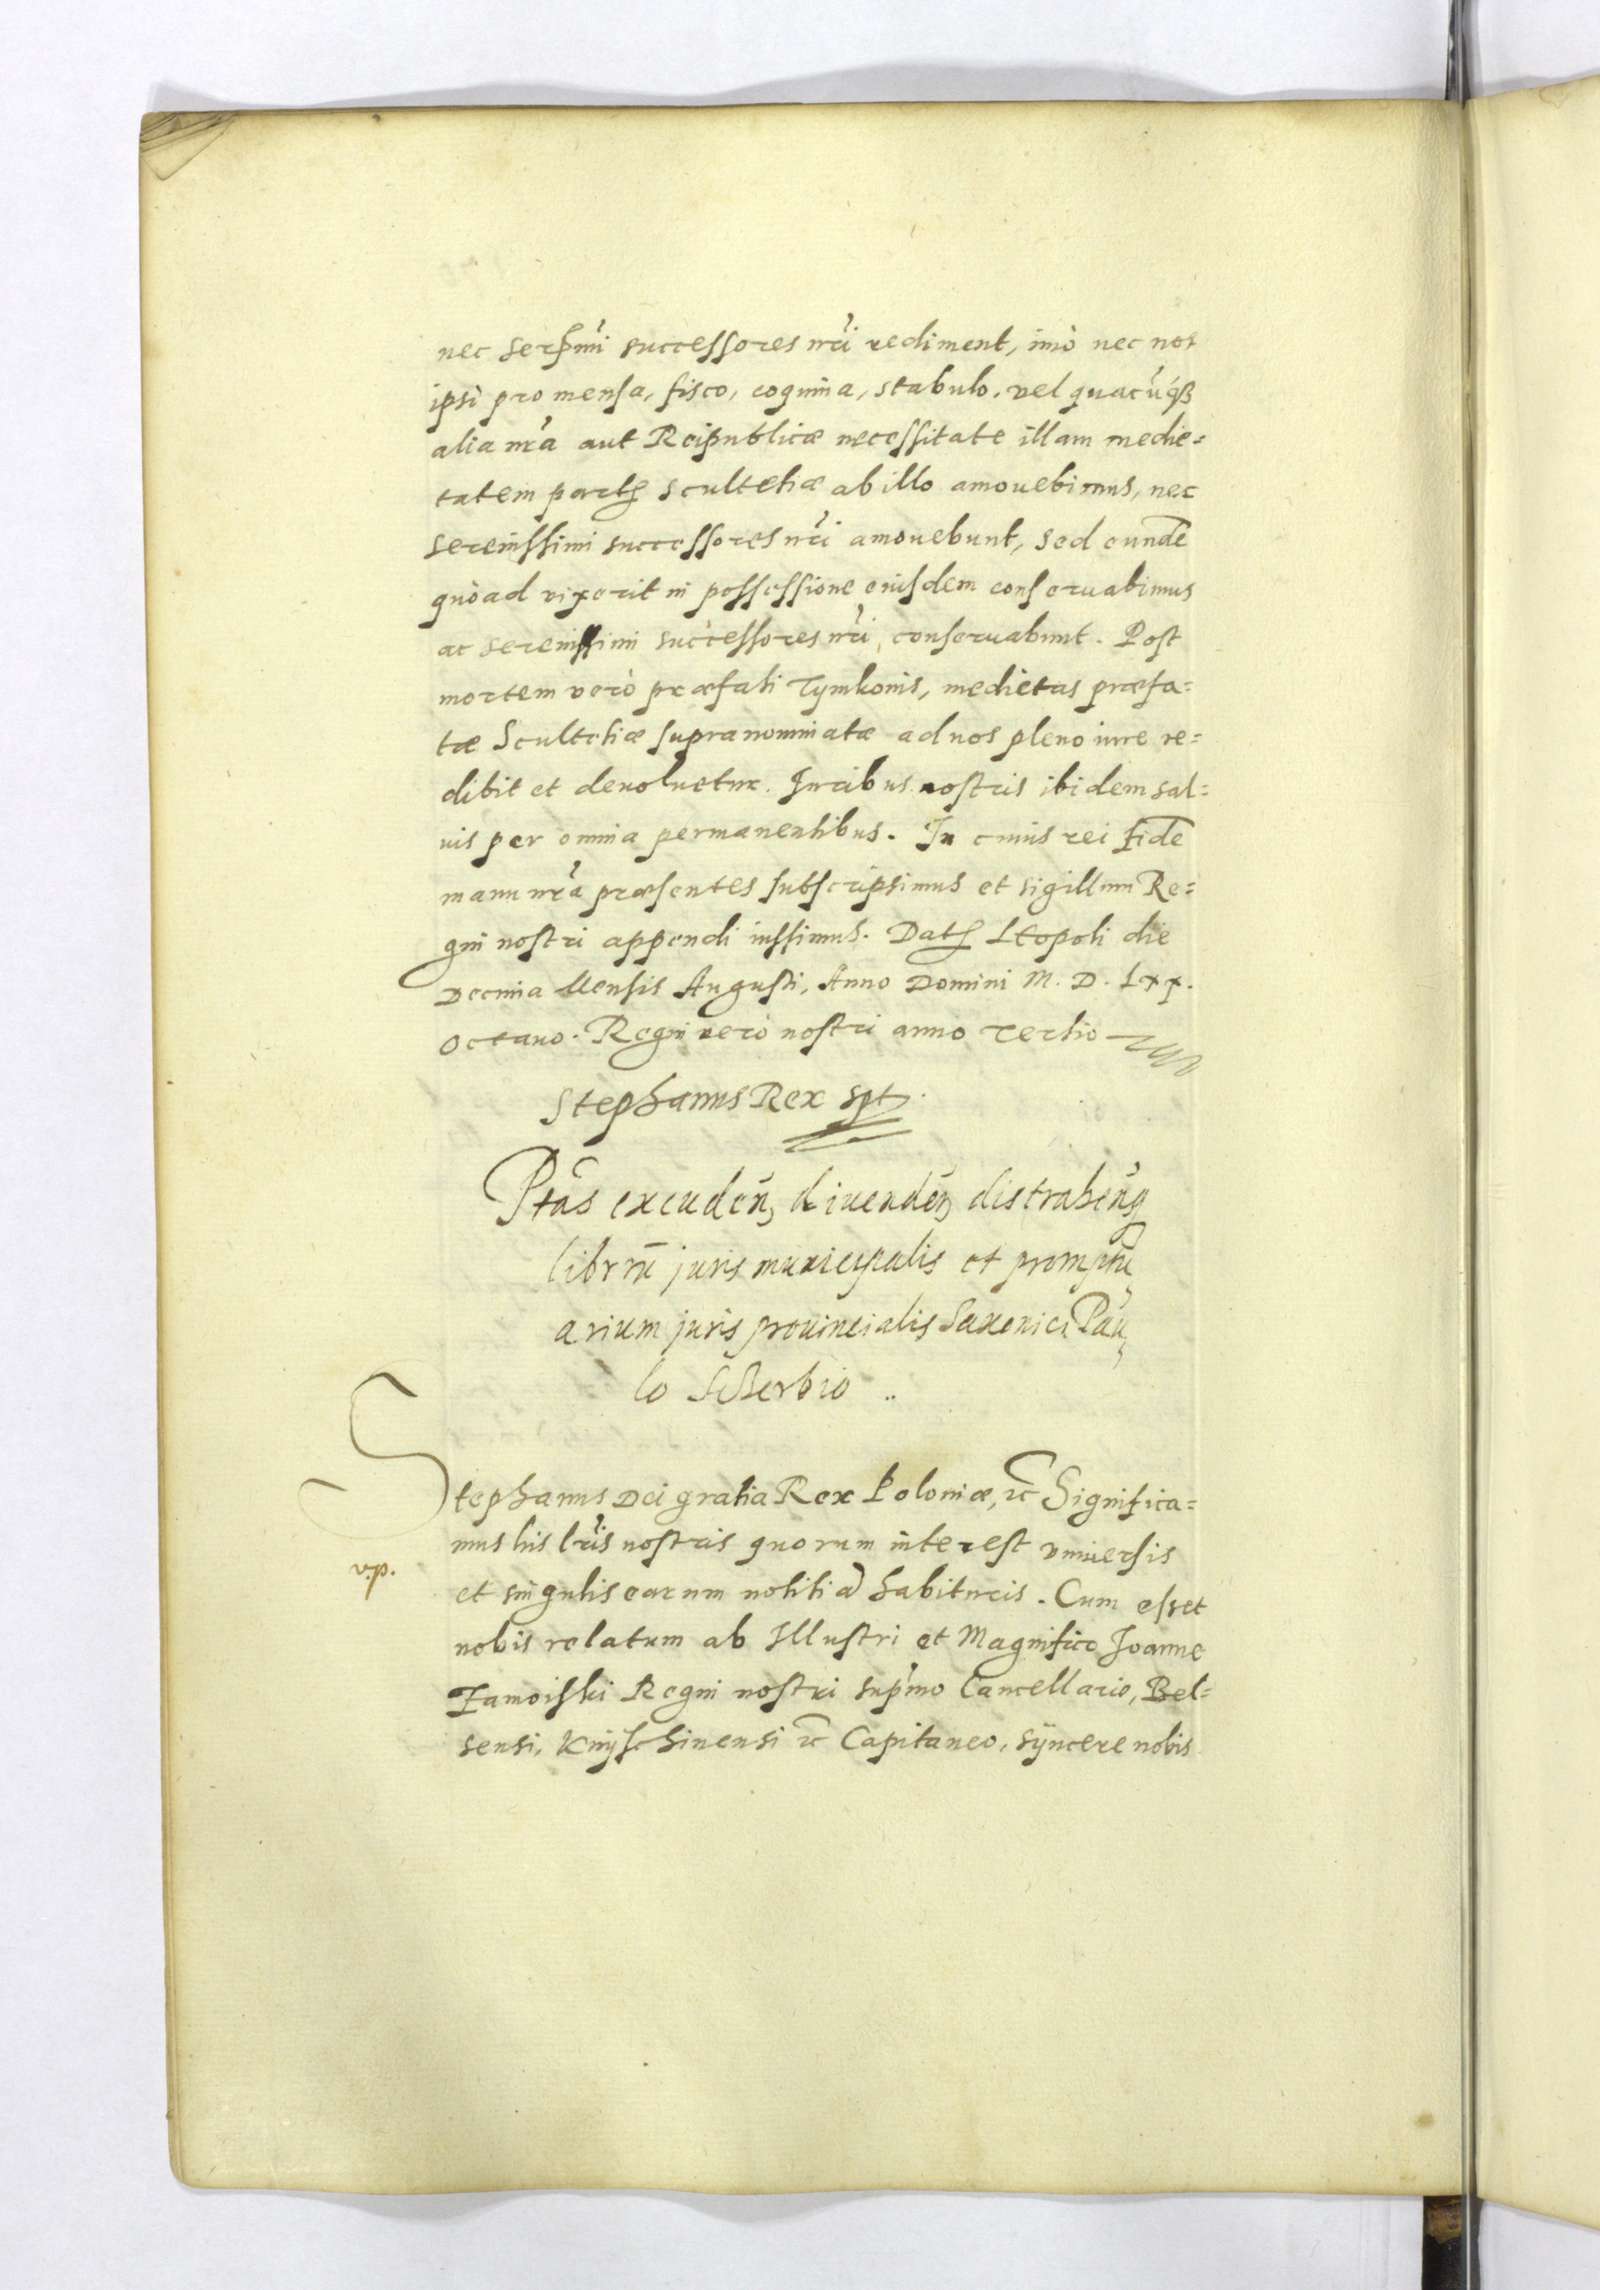 nec serssmi successores nri rediment, imò nec nos
ipsi pro mensa, fisco, coquina, stabulo, vel quacuqs
alia nra aut Reipublicæ necessitate illam medie=
tatem Scultetiæ ab illo amouebimus, nec
serenissimi successores nri amouebunt, sed eunde
quòad vixerit in possessione eiusdem conseruabimus
ac serenissimi successores nri, conseruabunt. Post
mortem verò præfati Tymkonis, medietas præfa=
tæ Scultetiæ supranominatæ ad nos pleno iure re=
dibit et deuoluetur. Juribus nostris ibidem sal=
uis per omnia permanentibus. In cuius rei fide
manu nra præsentes subscripsimus et sigillum Re=
gni nostri appendi iussimus. Dat Leopoli die
Decima Mensis Augusti, Anno Domini M. D. Lxx.
octauo. Regni verò nostri anno Tertio
Stephanus Rex spt
Ptas excuden, diuenden, distrahenq
librum juris municipalis et promptu
arium juris prouincialis Saxonici Pau
lo Scherbio ..
Stephanus Dei gratia Rex Poloniæ, &c Significa=
mus his lris nostris quorum interest vniuersis
v.p.
et singulis earum notitia habituris. Cum esset
nobis relatum ab Illustri et Magnifico Joanne
Zamoiski Regni nostri supmo Cancellario, Bel=
sensi, Knyschinensi &c Capitaneo, syncere nobis